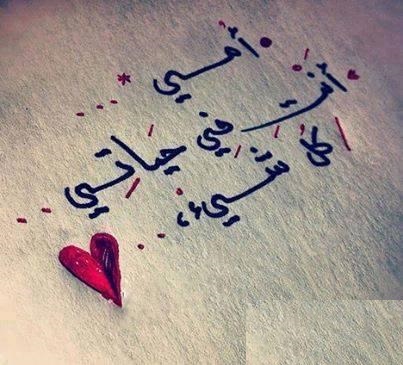 أمي
كل
في حياتي
شيء